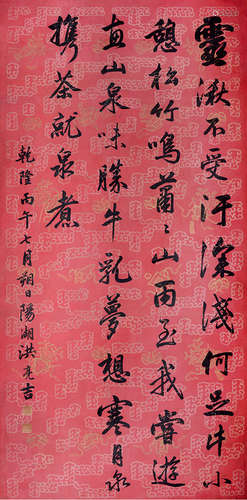 靈湫不受汙深淺何足片小
憩松竹鳴蕭〻山雨至我嘗遊
惠山泉味勝牛乳夢想寒月泉
携茶就泉煮
乾隆丙午七月朔日陽湖洪亮吉